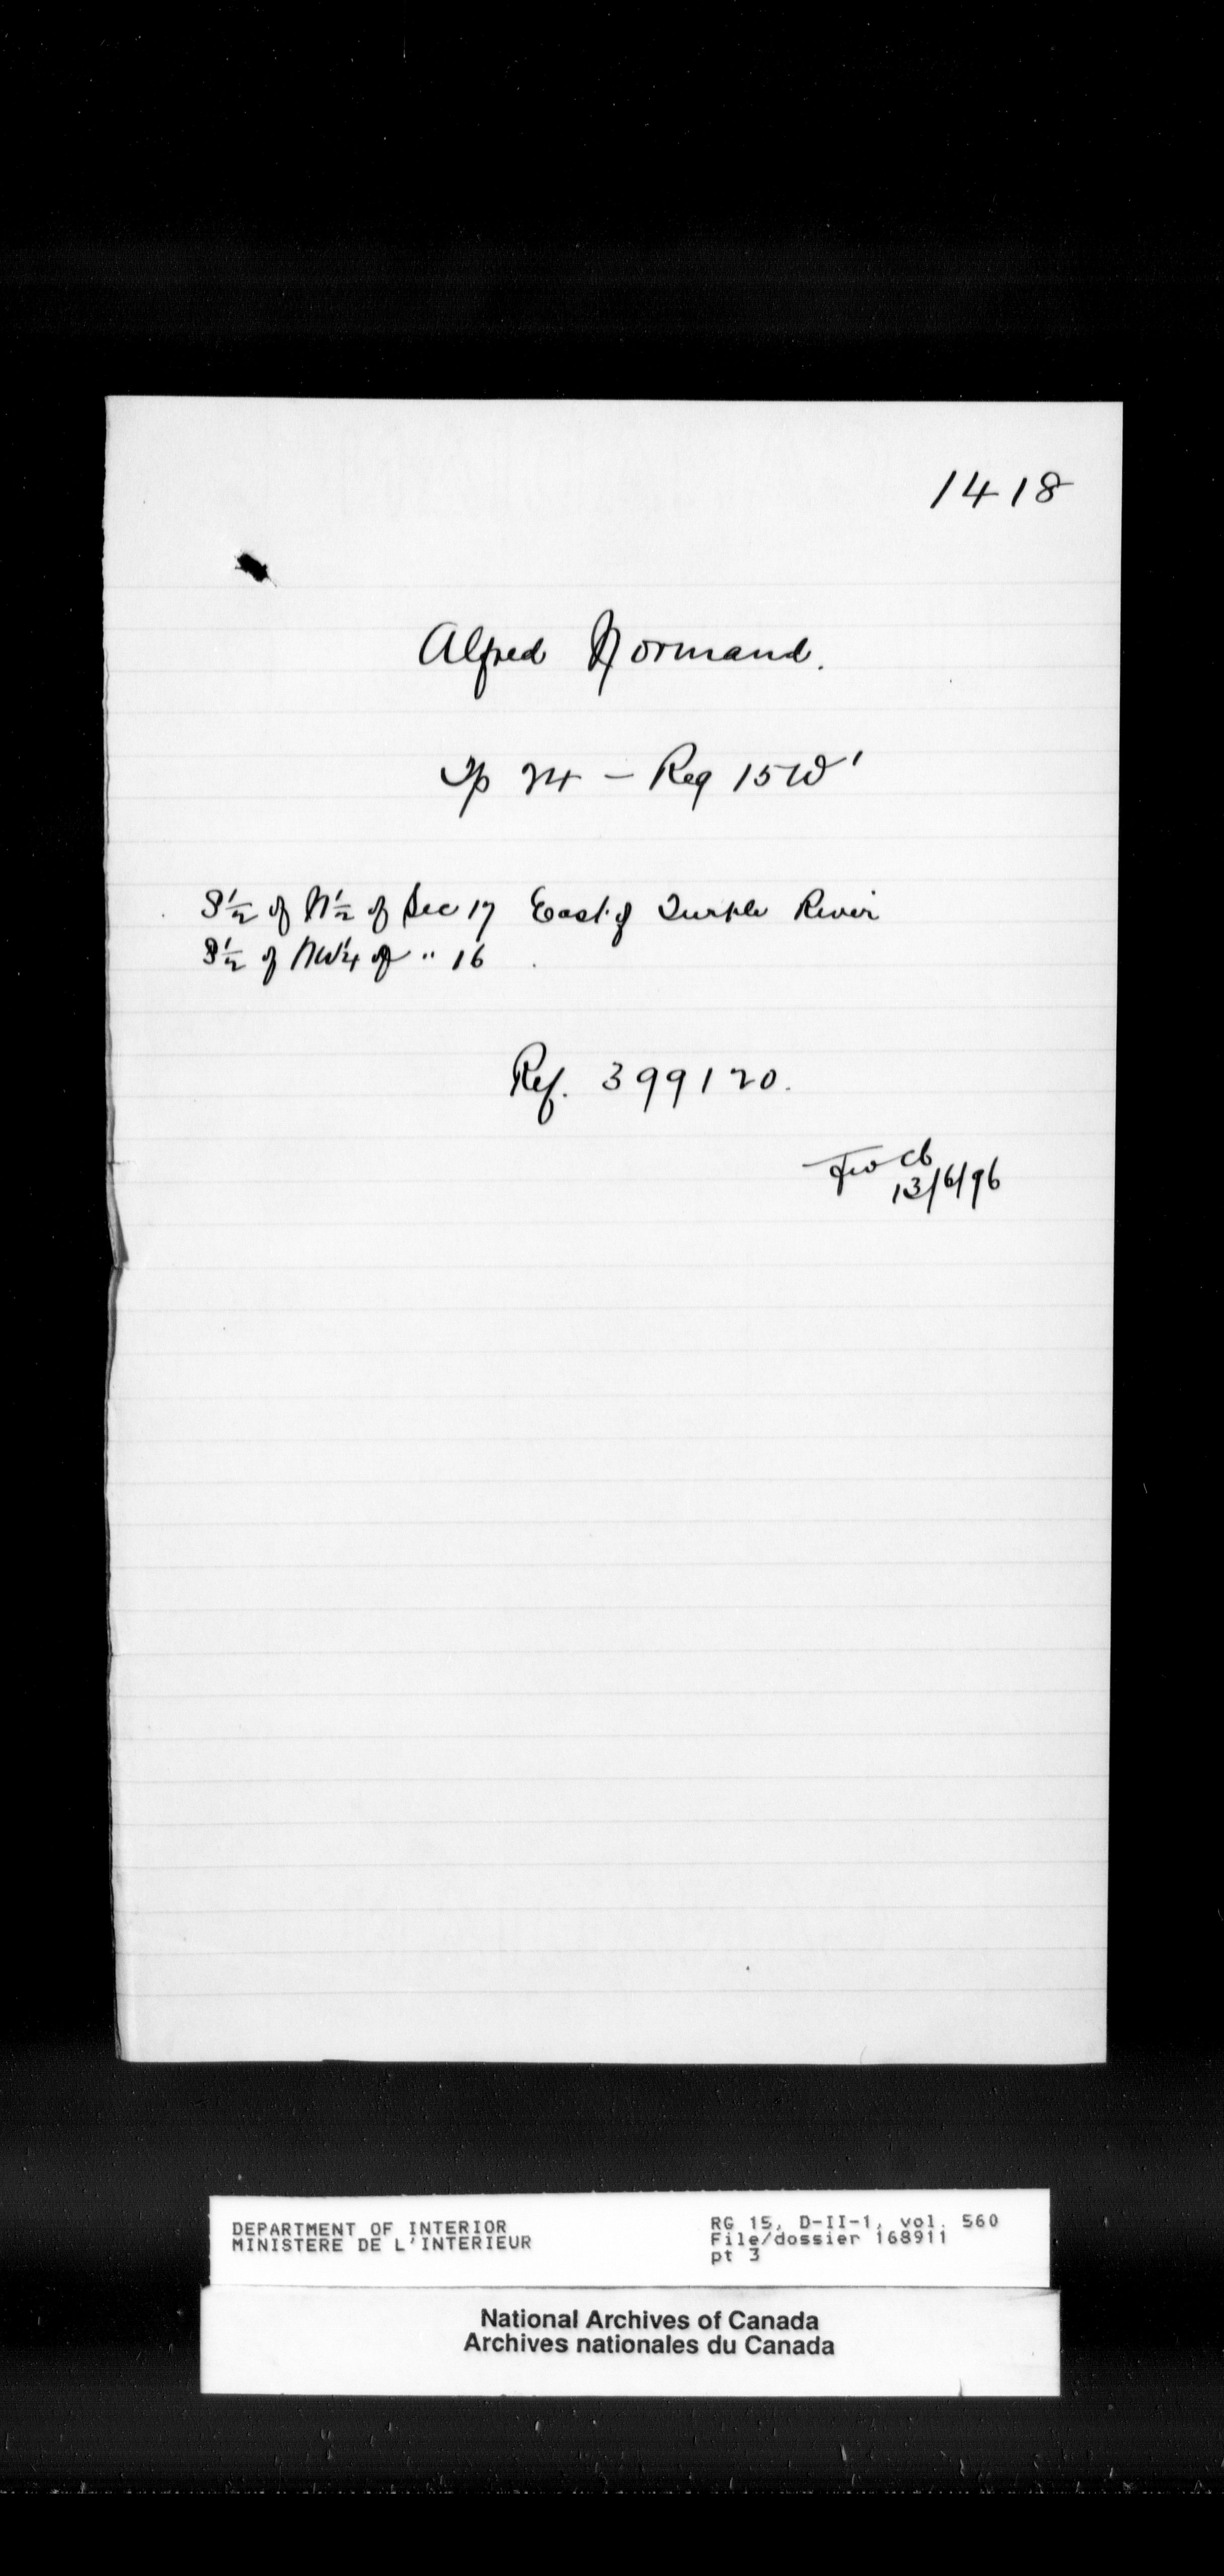 1418
Alfred Normand.
Tp 24 – Reg 15 W'
S½ of N½ of Sec 17 East of Turtle River
S½ of NW¼ of " 16
Ref. 399120.
13/6/96
DEPARTMENT OF INTERIOR
MINISTERE DE L'INTERIEUR
RG 15, D-II-1, vol. 560
File/dossier 168911
pt 3
National Archives of Canada
Archives nationales du Canada